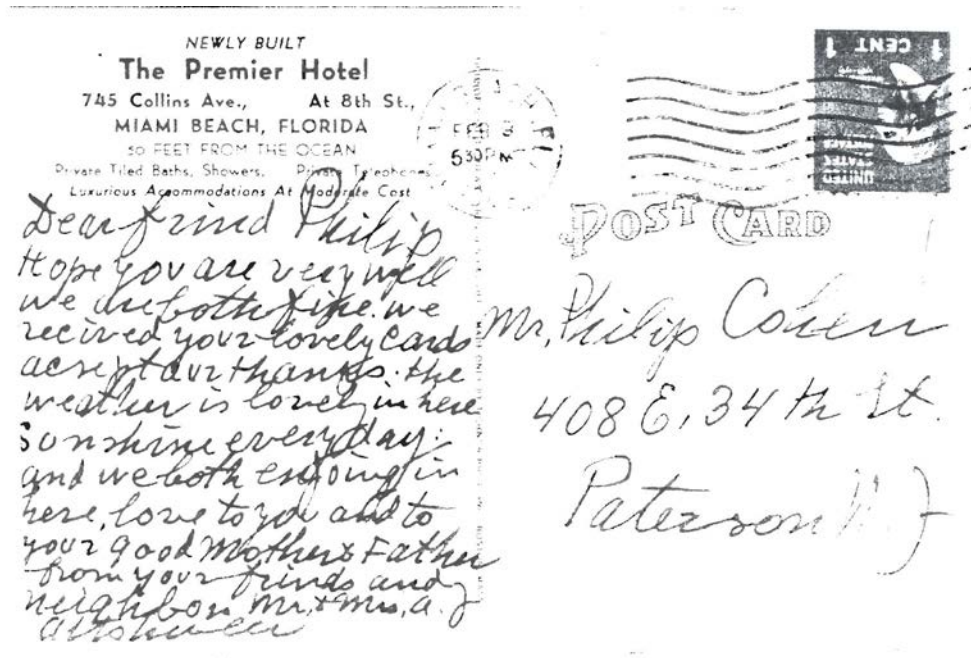 NEWLY BUILT
The Premier Hotel
745 Collins Ave., At 8th St.,
MIAMI BEACH, FLORIDA
50 FEET FROM THE OCEAN
Private Tiled Baths, Showers, Private Telephones
Luxurious Accommodations At Moderate Cost
Dear frind Philip
Hope you are very well
we are both fine. we
recived your lovely cards
acsept our thanks. the
weather is lovely in here
Sonshine every day.
and we both enjoing in
here, love to you and to
your good Mother & Father
from your frinds and
neighbors Mr. & Mrs. A.
FEB 3
530 PM
1 CENT 1
UNITED
STATES
POSTAGE
POST CARD
Mr. Philip Cohen
408 E. 34th St.
Paterson N.J